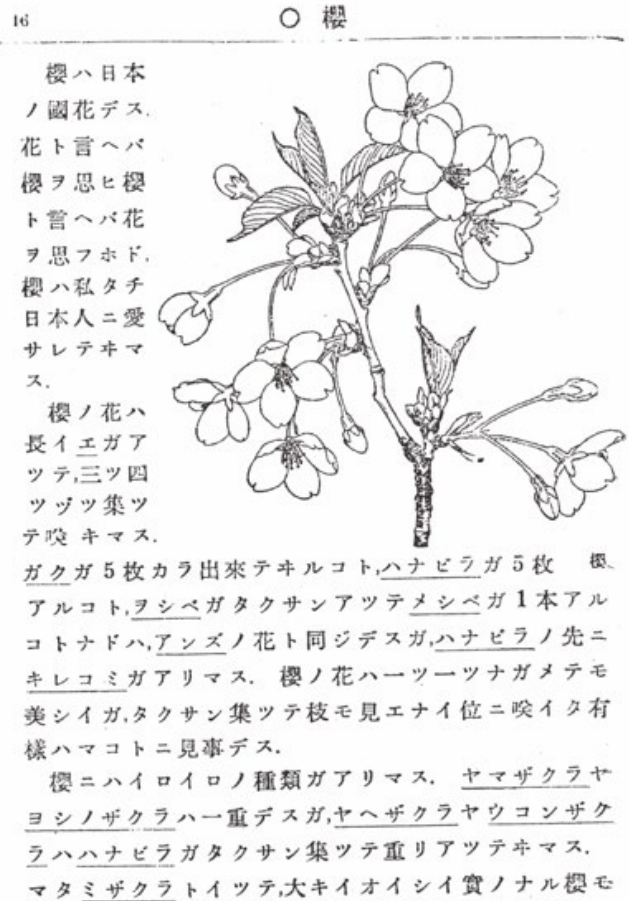 16
○ 櫻
櫻ハ日本
ノ國花デス.
花ト言ヘバ
櫻ヲ思ヒ櫻
ト言ヘバ花
ヲ思フホド,
櫻ハ私タチ
日本人ニ愛
サレテヰマ
ス.
櫻ノ花ハ
長イエガア
ツテ,三ツ四
ツヅツ集ツ
テ咲キマス.
ガクガ5枚カラ出來テヰルコト,ハナビラガ5枚
櫻.
アルコト,ヲシベガタクサンアツテメシベガ1本アル
コトナドハ,アンズノ花ト同ジデスガ,ハナビラノ先ニ
キレコミガアリマス. 櫻ノ花ハ一ツ一ツナガメテモ
美シイガ,タクサン集ツテ枝モ見エナイ位ニ咲イタ有
樣ハマコトニ見事デス.
櫻ニハイロイロノ種類ガアリマス. ヤマザクラヤ
ヨシノザクラハ一重デスガ,ヤヘザクラヤウコンザク
ラハハナビラガタクサン集ツテ重リアツテヰマス.
マタミザクラトイツテ,大キイオイシイ實ノナル櫻モ